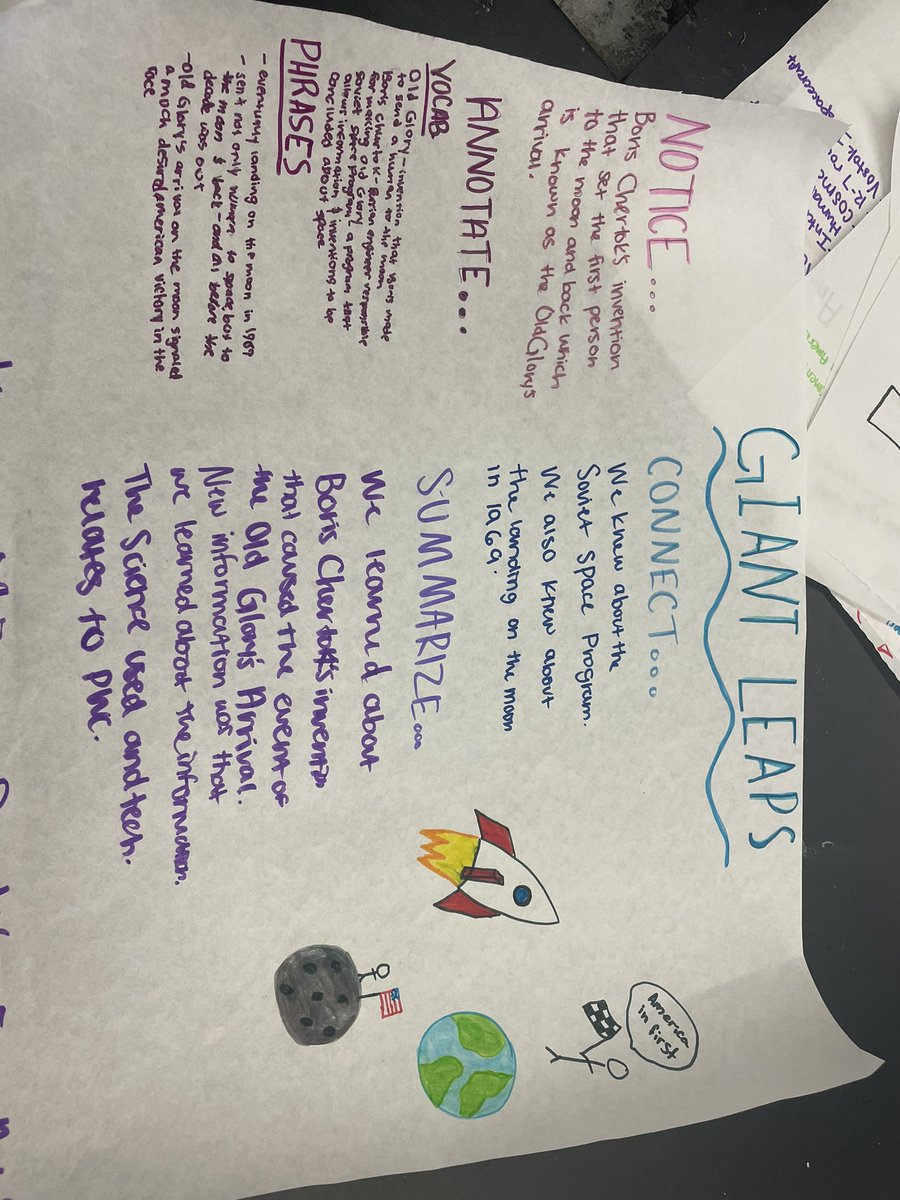 GIANT LEAPS
NOTICE...
Boris Chertok's invention
that set the first person
to the moon and back which
is known as the Old Glory's
arrival.
ANNOTATE...
VOCAB
Old Glory-invention that Boris made
to send a human to the moon
Boris Chertok-Russian engineer responsible
for making Old Glory
Soviet space program- a program that
allows information & inventions to be
concluded about space
PHRASES
- eventually landing on the moon in 1969
- sent not only human to space but to
the moon & back-and all before the
decade was out
-Old Glory's arrival on the moon signaled
a much desired american victory in the
race
CONNECT...
We knew about the
Soviet Space Program.
We also knew about
the landing on the moon
in 1969.
SUMMARIZE...
We learned about
Boris Chertok's invention
that caused the event of
the Old Glory's Arrival.
New information was that
we learned about the information.
The Science used and tech.
relates to PNC.
America
in first
spacecraft
Vostok-
R-7 ro
COSMO
Huma
Inte